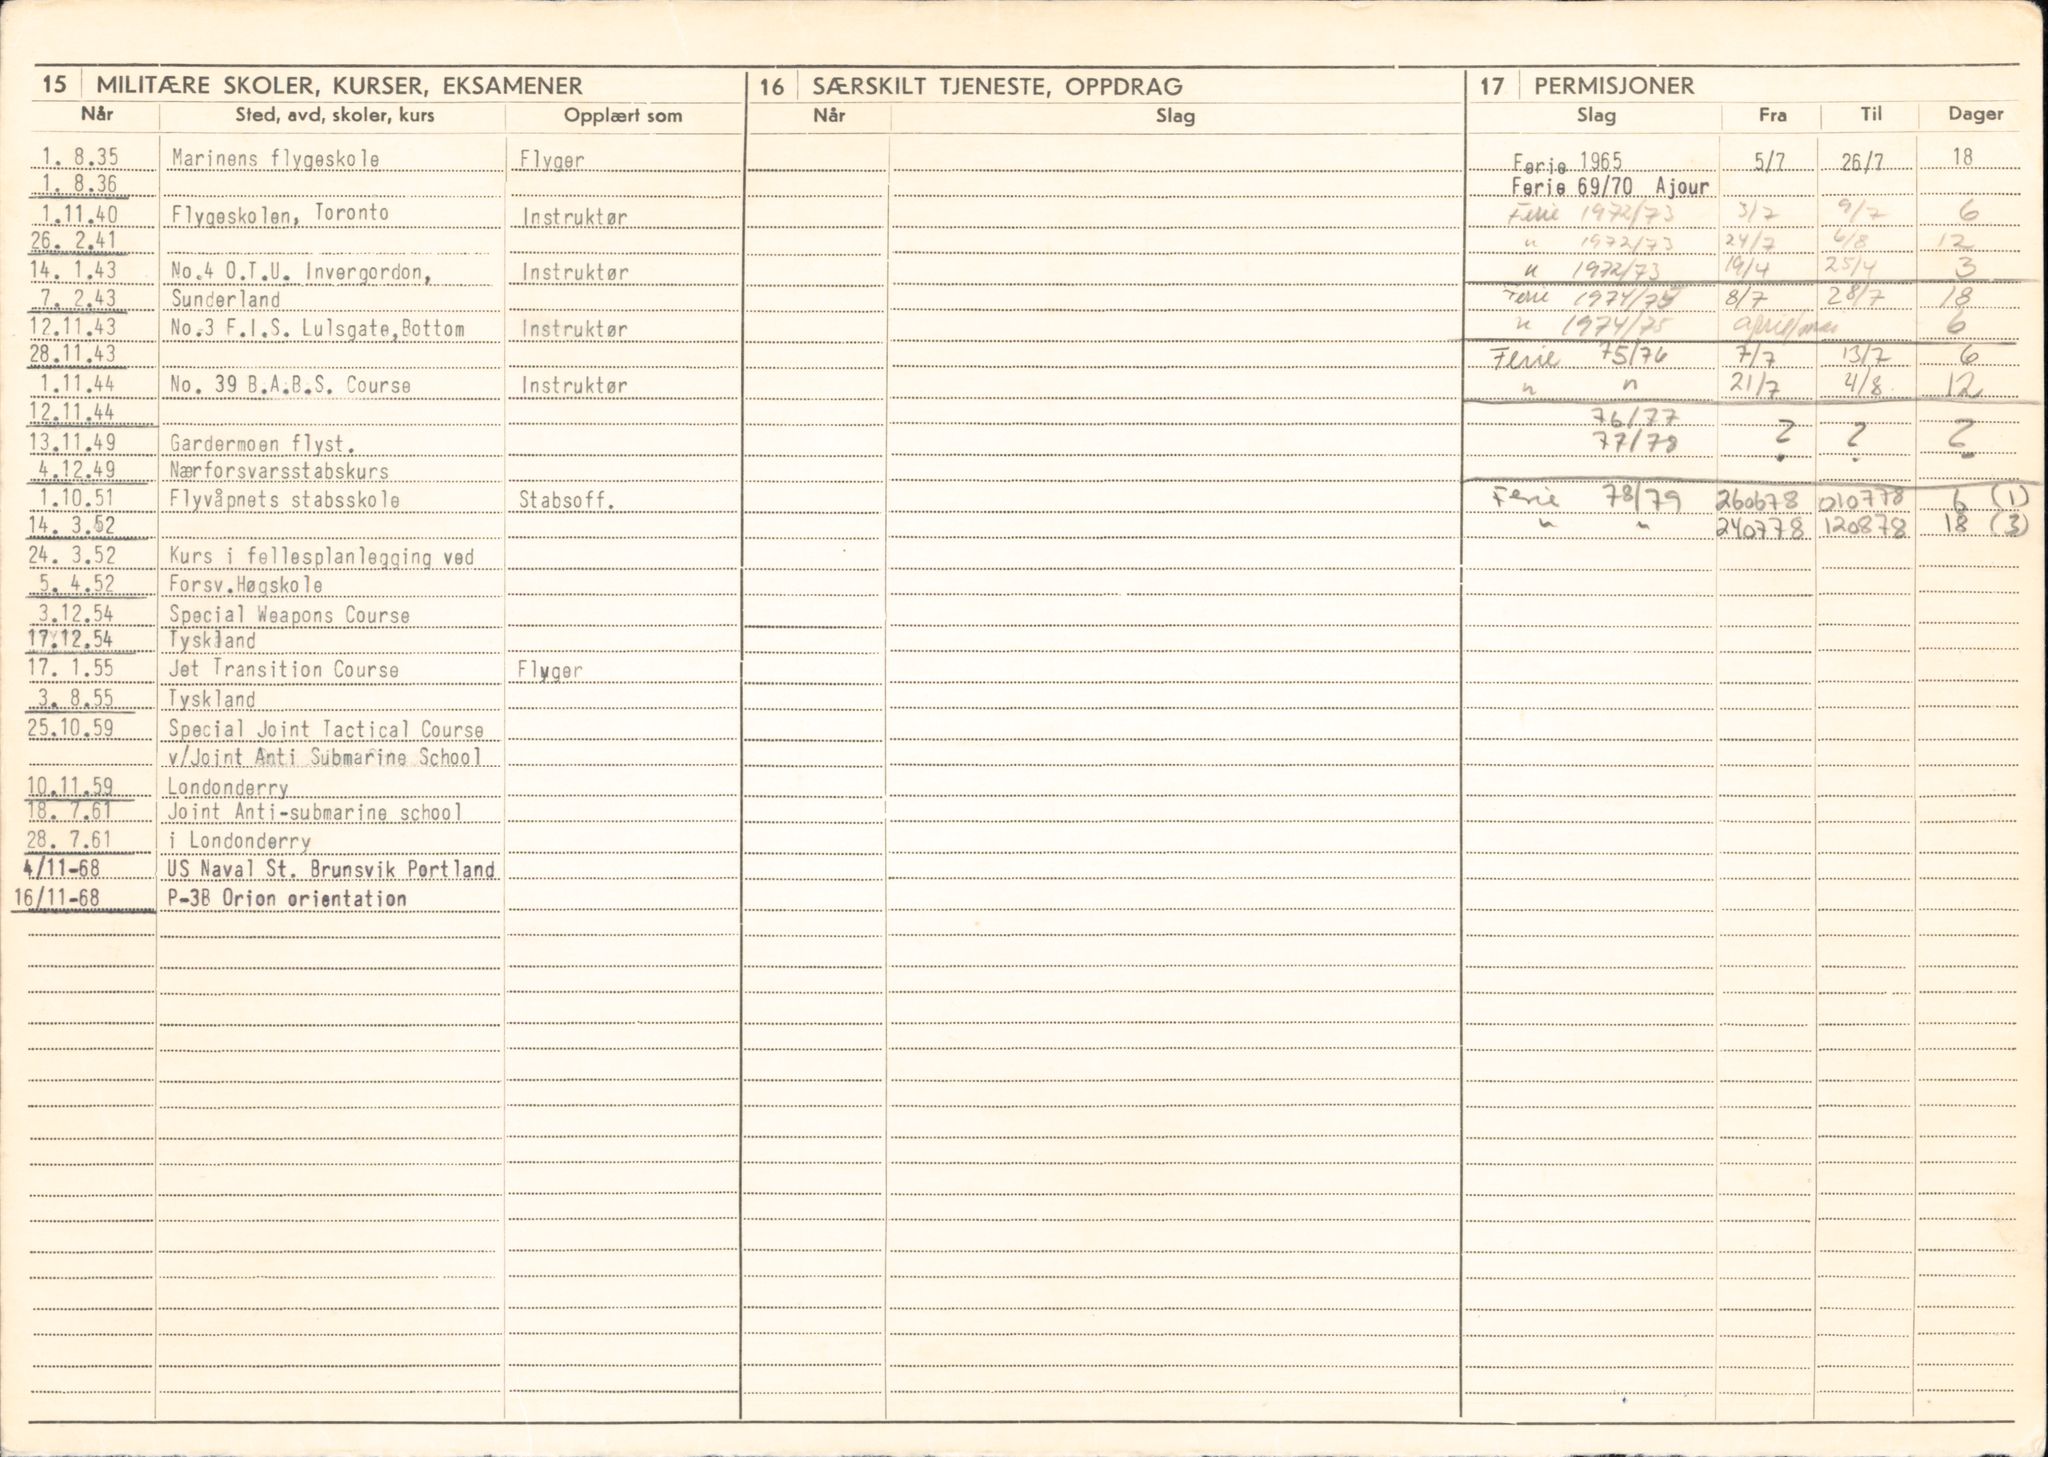 15 MILITÆRE SKOLER, KURSER, EKSAMENER
Når Sted, avd, skoler, kurs Opplært som
1. 8.35 Marinens flygeskole Flyger
1. 8.36
1.11.40 Flygeskolen, Toronto Instruktør
26. 2.41
14. 1.43 No.4 O.T.U. Invergordon, Instruktør
7. 2.43 Sunderland
12.11.43 No.3 F.I.S. Lulsgate,Bottom Instruktør
28.11.43
1.11.44 No. 39 B.A.B.S. Course Instruktør
12.11.44
13.11.49 Gardermoen flyst.
4.12.49 Nærforsvarsstabskurs
1.10.51 Flyvåpnets stabsskole Stabsoff.
14. 3.52
24. 3.52 Kurs i fellesplanlegging ved
5. 4.52 Forsv.Høgskole
3.12.54 Special Weapons Course
17.12.54 Tyskland
17. 1.55 Jet Transition Course Flyger
3. 8.55 Tyskland
25.10.59 Special Joint Tactical Course
v/Joint Anti Submarine School
10.11.59 Londonderry
18. 7.61 Joint Anti-submarine school
28. 7.61 i Londonderry
4/11-68 US Naval St. Brunsvik Portland
16/11-68 P-3B Orion orientation
16 SÆRSKILT TJENESTE, OPPDRAG
Når Slag
17 PERMISJONER
Slag Fra Til Dager
Ferie 1965 5/7 26/7 18
Ferie 69/70 Ajour
Ferie 1972/73 3/7 9/7 6
" 1972/73 24/7 6/8 12
" 1972/73 19/4 25/4 3
Ferie 1974/75 8/7 28/7 18
" 1974/75 april/mai 6
Ferie 75/76 7/7 13/7 6
" " 21/7 4/8 12
76/77
77/78 ? ? ?
Ferie 78/79 260678 010778 6 (1)
" " 240778 120878 18 (3)